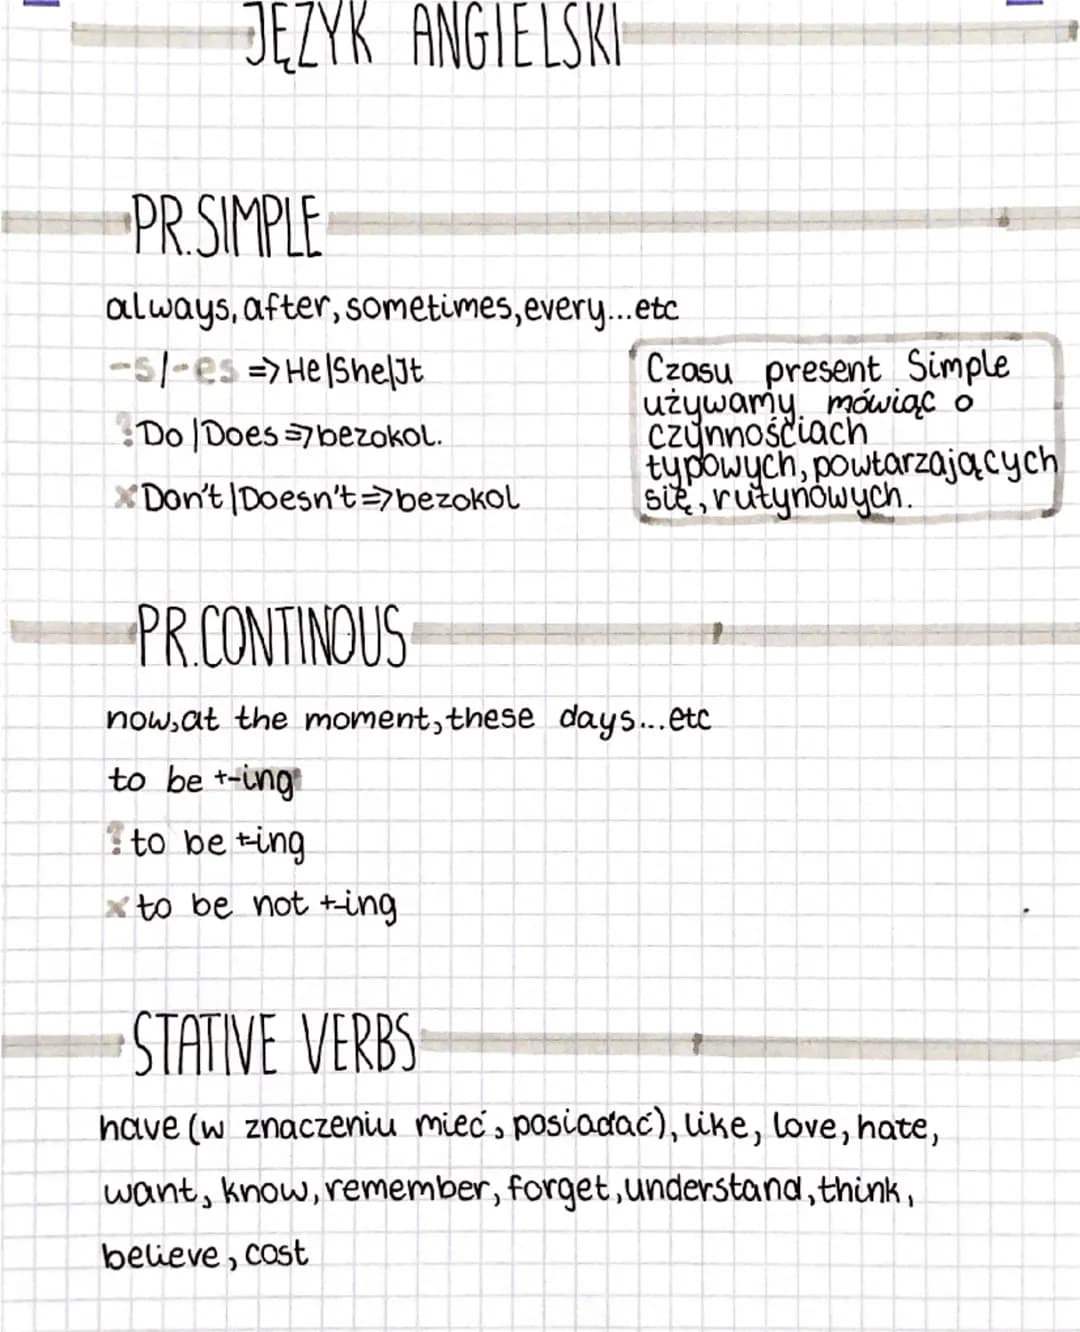 JĘZYK ANGIELSKI
PR.SIMPLE
always, after, sometimes, every...etc
-s/-es => He/She/It
? Do / Does => bezokol.
x Don't / Doesn't => bezokol
Czasu present Simple
używamy mówiąc o
czynnościach
typowych, powtarzających
się, rutynowych.
PR.CONTINOUS
now, at the moment, these days...etc
to be +-ing
? to be +-ing
x to be not +-ing
STATIVE VERBS
have (w znaczeniu mieć, posiadać), like, love, hate,
want, know, remember, forget, understand, think,
believe, cost